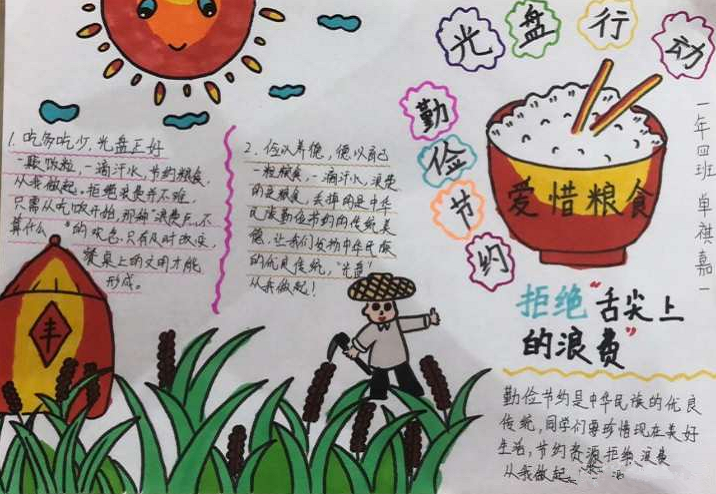 光盘行动
勤俭节约
爱惜粮食
一年四班 卓祺嘉
拒绝"舌尖上
的浪费"
1. 吃多吃少,光盘正好
一颗饭粒,一滴汗水,节约粮食,
从我做起。拒绝浪费并不难,
只需从吃饭开始,那种"浪费点不
算什么"的 只有及时改变,
餐桌上的文明才能
形成。
2. 俭以养德,德以
一粒粮食,一滴汗水,浪费
的是粮食,丢掉的是中华
民族勤俭节约的传统美
德,让我们发扬中华民族
的优良传统,"光盘"
从我做起!
丰
勤俭节约是中华民族的优良
传统,同学们要珍惜现在美好
生活,节约资源拒绝浪费
从我做起。